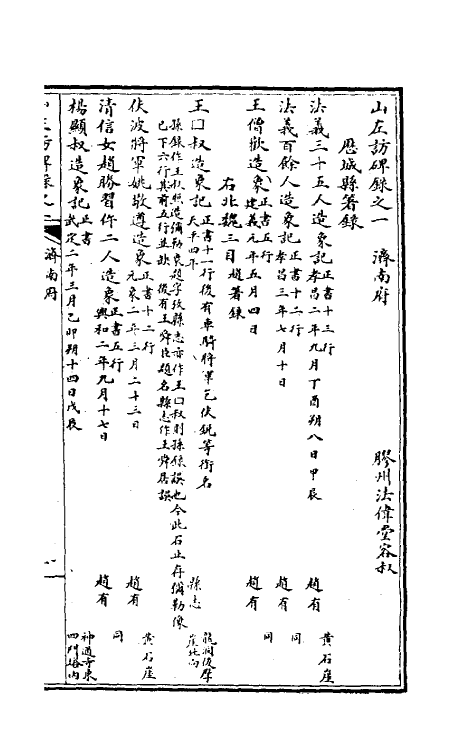 山左訪碑錄之一　濟南府　膠州法偉堂容叔
歷城縣著錄
法義三十五人造象記 正書十三行 孝昌二年九月丁酉朔八日甲辰　趙有　黃石崖
法義百餘人造象記 正書十二行 孝昌三年七月十日　趙有　同
王僧歡造象 正書五行 建義元年五月四日　趙有　同
右北魏三目趙著錄
王囗叔造象記 正書十一行後有車騎將軍乞伏銳等銜名 天平四年　縣志　龍洞後壁崖北向
孫錄作王叔照造彌勒象題字攷縣志亦作王囗叔則孫錄誤也今此石止存彌勒像
已下六行其前五行並缺　後有王舜臣題名縣志作王舜居誤
伏波將軍姚敬遵造象 正書十二行 元象二年三月二十三日　趙有　黃石崖
清信女趙勝習仵二人造象 正書五行 興和二年九月十七日　趙有　同
楊顯叔造象記 正書 武定二年三月乙卯朔十四日戊辰　神通寺東四門塔內
濟南府